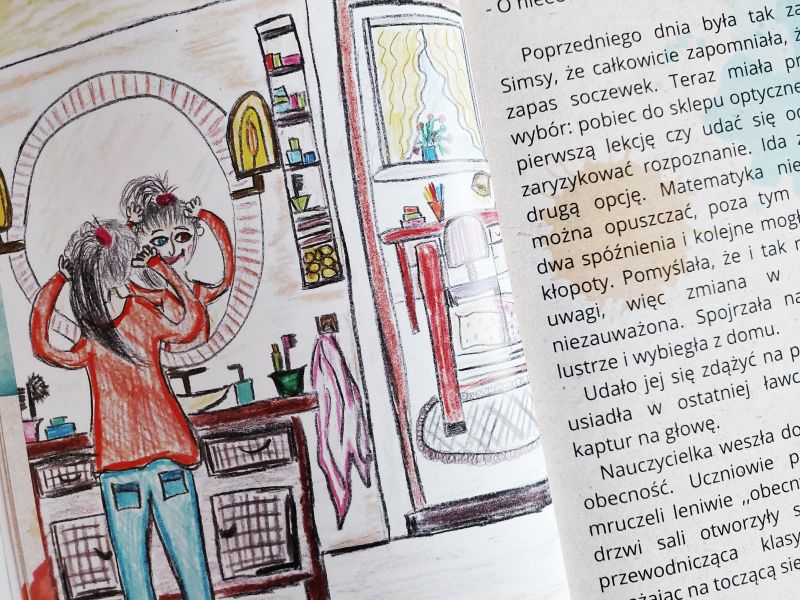 - O
Poprzedniego dnia była tak
Simsy, że całkowicie zapomniała,
zapas soczewek. Teraz miała
wybór: pobiec do sklepu
pierwszą lekcję czy udać się
zaryzykować rozpoznanie. Ida
drugą opcję. Matematyka
można opuszczać, poza tym
dwa spóźnienia i kolejne
kłopoty. Pomyślała, że i tak
uwagi, więc zmiana w
niezauważona. Spojrzała
lustrze i wybiegła z domu.
Udało jej się zdążyć na
usiadła w ostatniej
kaptur na głowę.
Nauczycielka weszła
obecność. Uczniowie
mruczeli leniwie „
drzwi sali otworzyły
przewodnicząca
na toczącą się